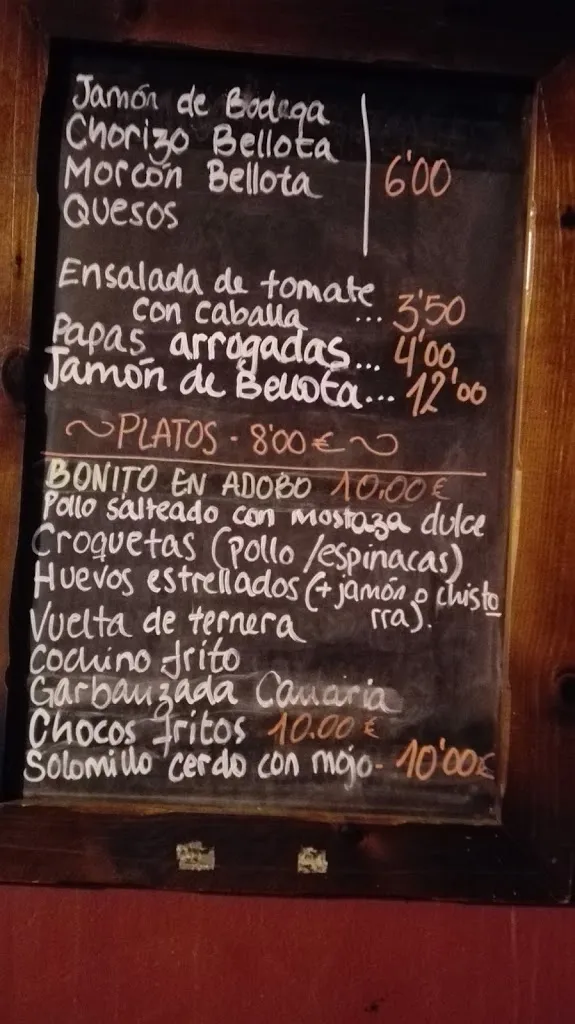 Jamón de Bodega
Chorizo Bellota
Morcón Bellota
Quesos
6'00
Ensalada de tomate
con caballa ... 3'50
Papas arrogadas... 4'00
Jamón de Bellota... 12'00
~PLATOS - 8'00 €~
BONITO EN ADOBO 10.00 €
Pollo salteado con mostaza dulce
Croquetas (pollo/espinacas)
Huevos estrellados (+ jamón o chisto
rra).
Vuelta de ternera
Cochino frito
Garbanzada Canaria
Chocos fritos 10.00 €
Solomillo cerdo con mojo- 10'00€